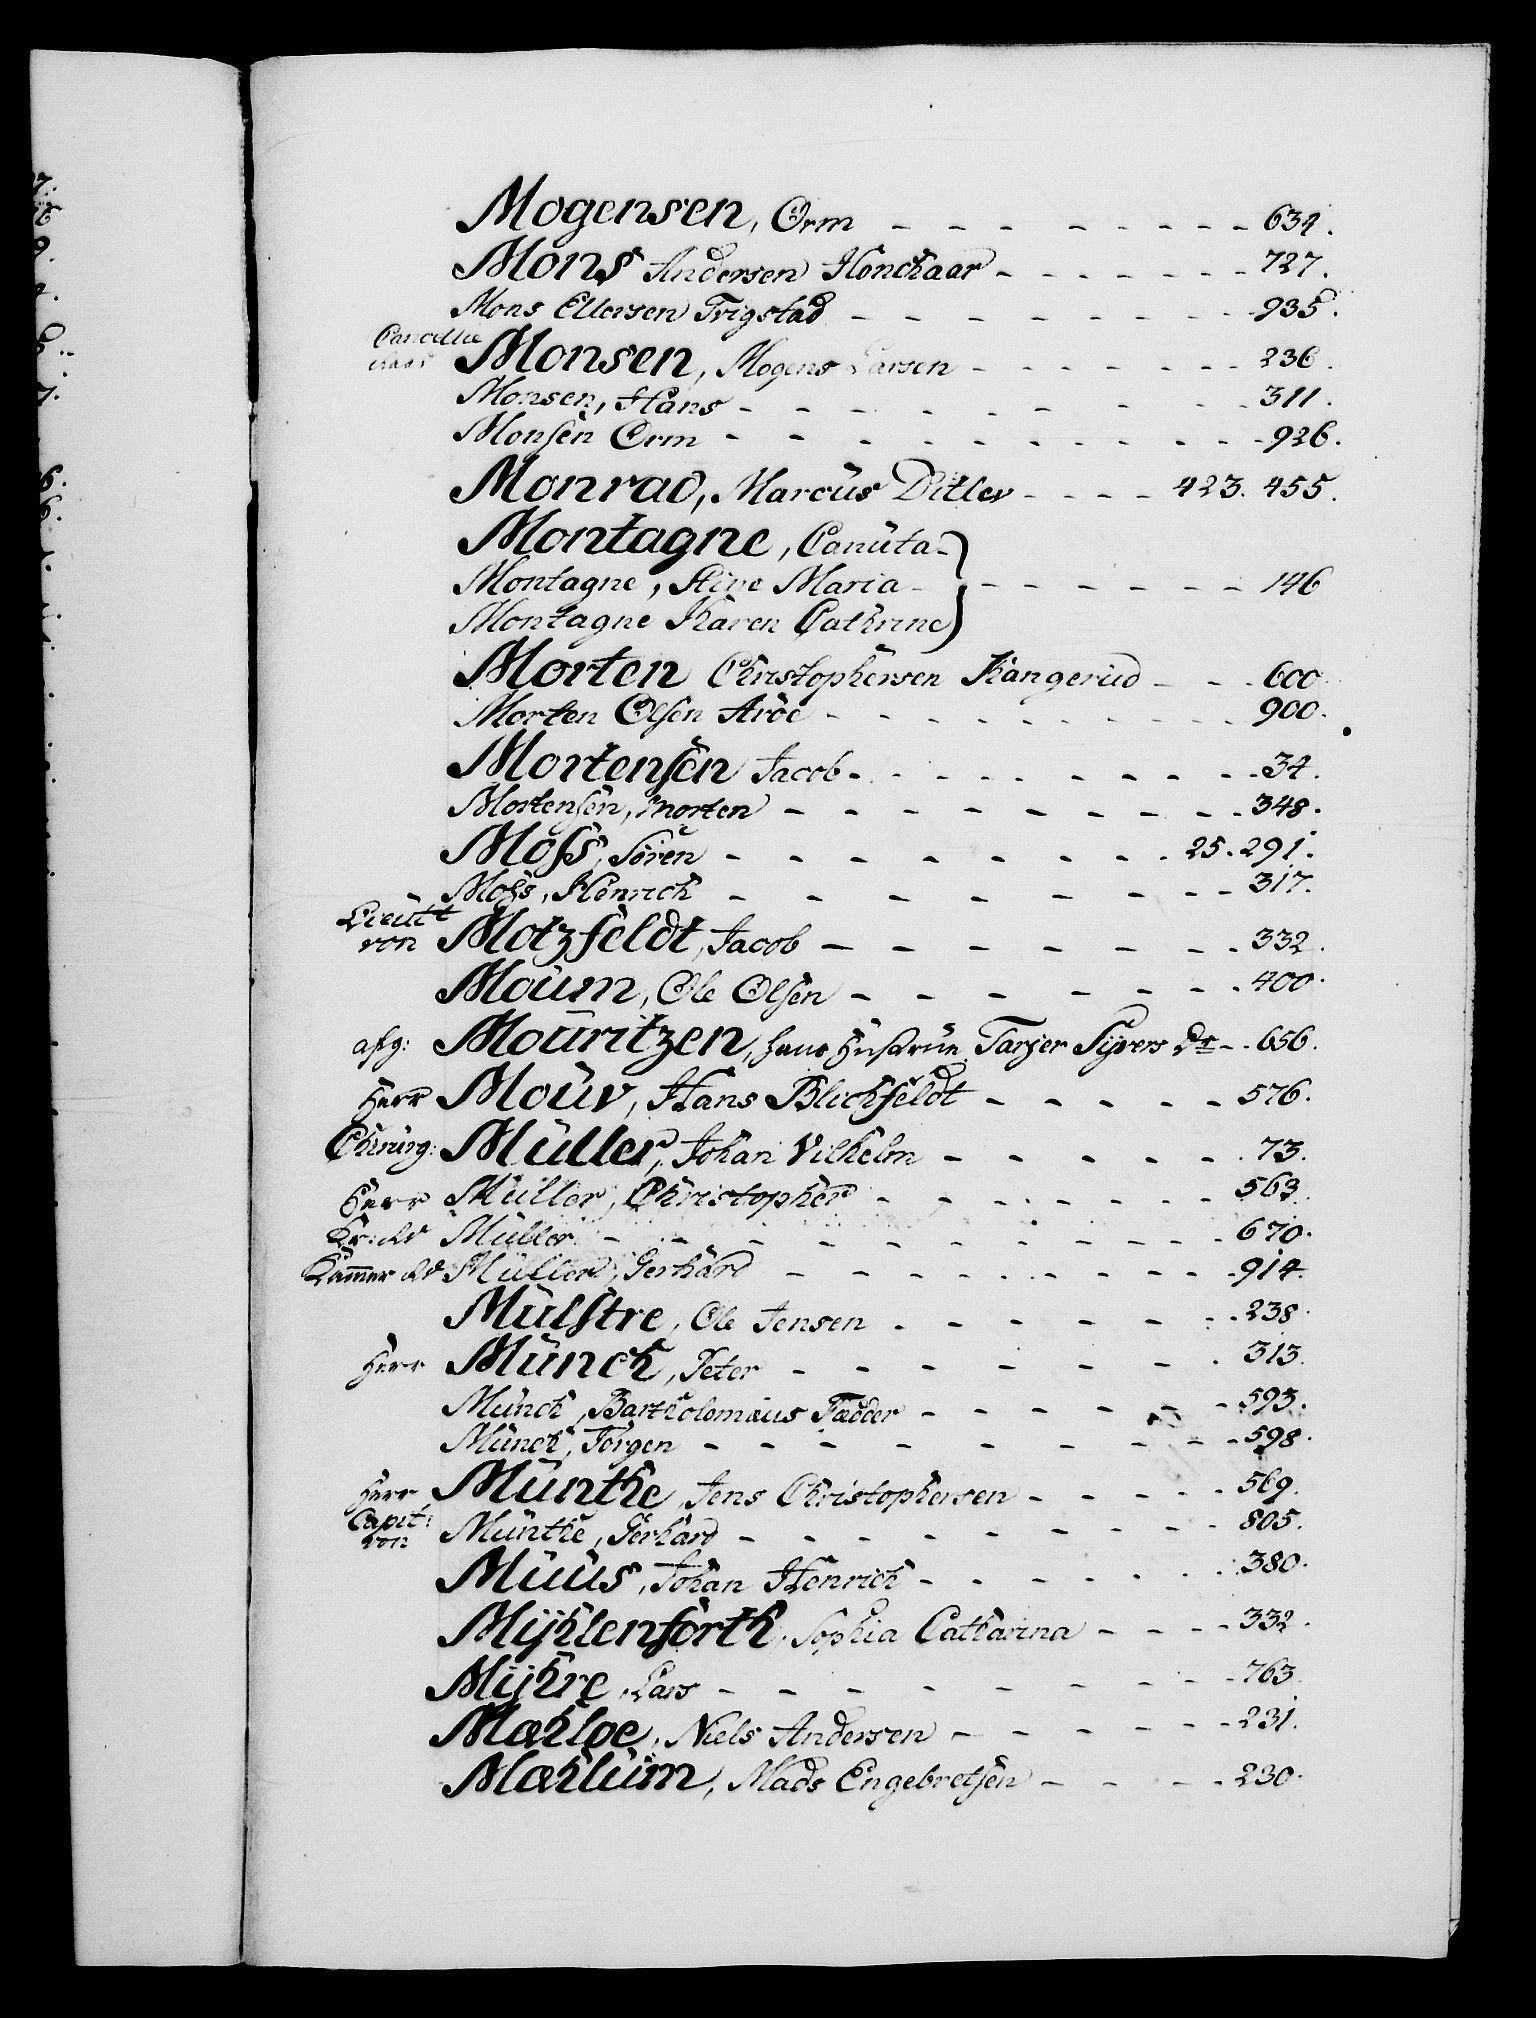 Mogensen, Orm - - - - - - - - - 634.
Mons Andersen Honchaar - - - - - - - 727.
Mons Ellersen Trigstad - - - - - - - - - 935.
Cancellie
Raad Monsen, Mogens Larsen - - - - - - - 236.
Monsen, Hans - - - - - - - - - 311.
Monsen Orm - - - - - - - - - - 926.
Monrad, Marcus Ditlev - - - - 423. 455.
Montagne, Canuta -
Montagne, Maria - } - - - - - - - 146
Montagne Karen Cathrine
Morten Christophersen Kangerud - - - 600
Morten Olsen Aröe - - - - - - - - - 900.
Mortensen Jacob - - - - - - - - - - 34.
Mortensen, Morten - - - - - - - - - 348.
Moss, Sören - - - - - - - - 25. 291.
Moss, Henrich - - - - - - - - - 317.
Lieutt
von Motzfeldt, Jacob - - - - - - - - 332.
Moum, Ole Olsen - - - - - - - 400.
afg: Mouritzen, hans Hustrue Tarjer Sÿvers Dr - - 656.
Herr Mouv, Hans Blichfeldt - - - - - 576.
Chirurg: Müller, Johan Vilhelm - - - - - - 73.
Herr Müller, Christopher - - - - - - - - 563.
Kr: Rd Müller - - - - - - - - - - - 670.
Kammer Rd Müller, Gerhard - - - - - - - - - - 914.
Mulstre, Ole Jensen - - - - - - - 238.
Herr Münch, Peter - - - - - - - - 313.
Münch, Bartholomæus Fædder - - - - - - 593.
Münch, Jörgen - - - - - - - - - 598.
Herr Munthe, Jens Christophersen - - - - - 569.
Capit:
von Munthe, Gerhard - - - - - - - - - - 805.
Muus, Johan Henrich - - - - - - - 380.
Mÿhlenforth, Sophia Catharina - - - - 332.
Mÿhre, Lars - - - - - - - - - 763.
Mæhloe, Niels Andersen - - - - - - 231.
Mæhlum, Mads Engebretsen - - - - 230.